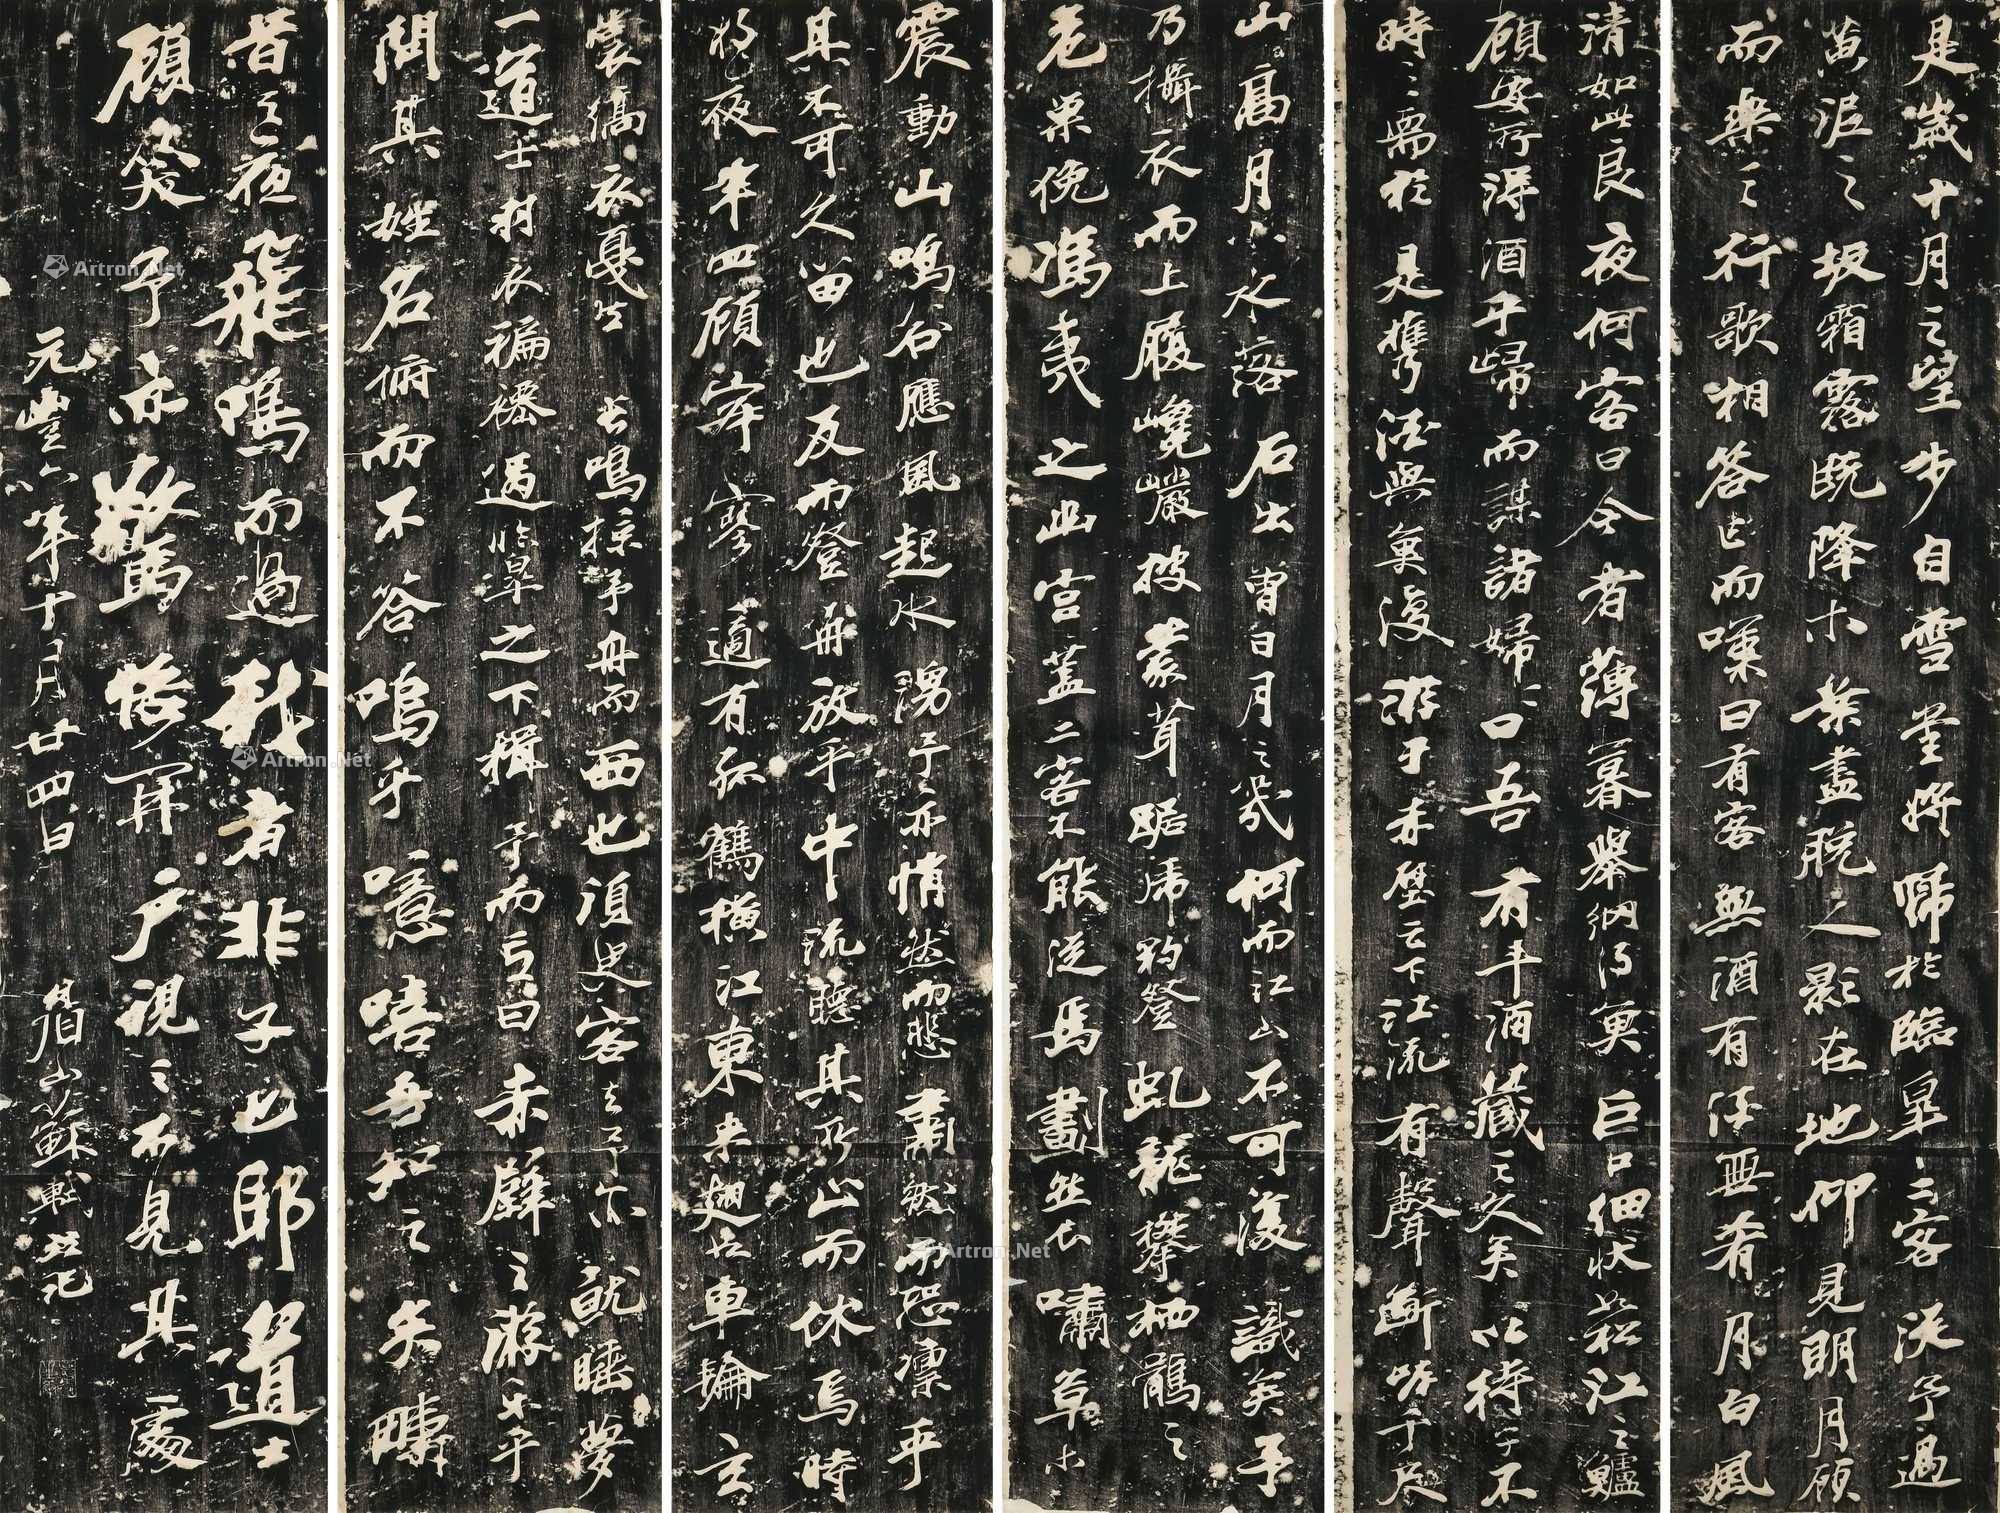 是歲十月之望步自雪堂將歸於臨皋二客從予過
黃泥之坂霜露既降木葉盡脫人影在地仰見明月顧
而樂之行歌相答已而嘆曰有客無酒有酒無肴月白風
清如此良夜何客曰今者薄暮舉網得魚巨口細鱗狀如松江之鱸
顧安所得酒乎歸而謀諸婦婦曰吾有斗酒藏之久矣以待子不
時之需於是攜酒與魚復游于赤壁之下江流有聲斷岸千尺
山高月小水落石出曾日月之幾何而江山不可復識矣予
乃攝衣而上履巉巖披蒙茸踞虎豹登虬龍攀栖鶻之
危巢俛馮夷之幽宮蓋二客不能從焉劃然長嘯草木
震動山鳴谷應風起水湧予亦悄然而悲肅然而恐凜乎
其不可久留也反而登舟放乎中流聽其所止而休焉時
將夜半四顧寂寥適有孤鶴橫江東來翅如車輪玄
裳縞衣戛然長鳴掠予舟而西也須臾客去予亦就睡夢
一道士羽衣蹁躚過臨皋之下揖予而言曰赤壁之游樂乎
問其姓名俯而不答嗚乎噫嘻吾知之矣疇
昔之夜飛鳴而過我者非子也耶道士
顧笑予亦驚悟開戶視之不見其處
元豐六年十月廿四日 眉山蘇軾書
Artron.Net
Artron.Net
Artron.Net